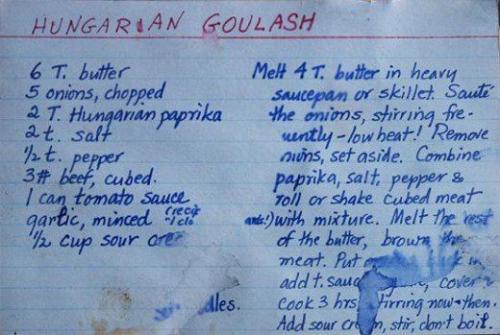 HUNGARIAN GOULASH
6 T. butter
5 onions, chopped
2 T. Hungarian paprika
2 t. salt
1/2 t. pepper
3# beef, cubed.
1 can tomato sauce
garlic, minced
1/2 cup sour
Melt 4 T. butter in heavy
saucepan or skillet. Sauté
the onions, stirring fre-
uently - low heat! Remove
set aside. Combine
paprika, salt, pepper &
roll or shake cubed meat
with mixture. Melt the rest
of the butter, brown the
meat. Put
add t. cover
cook 3 hrs, now & then.
Add sour stir, don't boil.